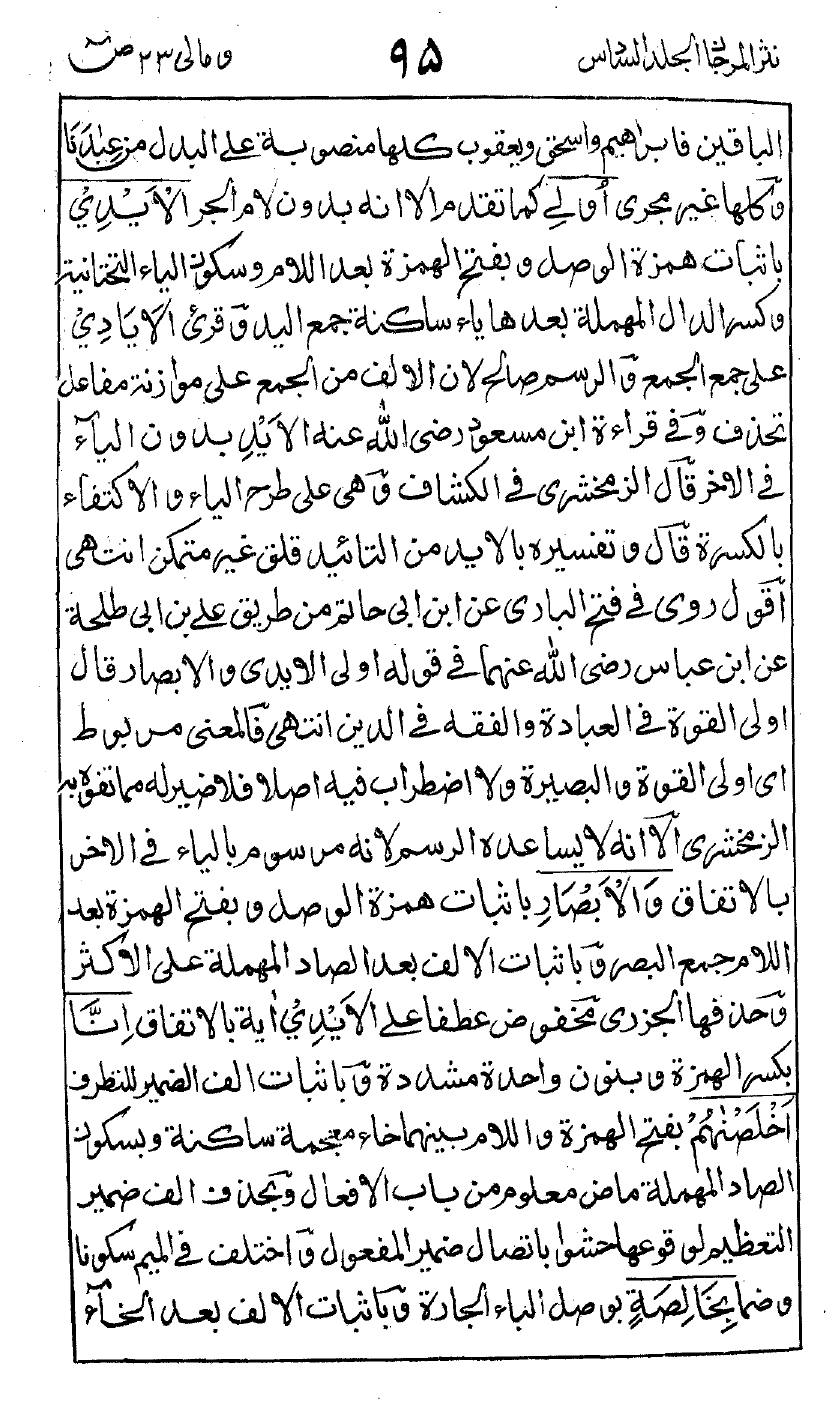 نثر المرجان الجلد السادس ۹۵ ومالى ۲۳ ص
الباقين فابراهيم واسحق ويعقوب كلها منصوبة على البدل من عِبٰدَنَا
وكلها غير مجرى أُولِے كما تقدم الا انه بدون لام الجر الْاَيْدِيْ
باثبات همزة الوصل وبفتح الهمزة بعد اللام وسكون الياء التحتانية
وكسر الدال المهملة بعدها ياء ساكنة جمع اليد وَقرئ الْاَيَادِيْ
على جمع الجمع وَالرسم صالح لان الالف من الجمع على موازنة مفاعل
تحذف وَفے قراءة ابن مسعود رضى الله عنه الْاَيْدِ بدون اليآء
فے الاخر قال الزمخشرى فے الكشاف وَهى على طرح الياء والاكتفاء
بالكسرة قال وتفسيره بالايد من التائيد قلق غير متمكن انتهى
اَقول روى فے فتح البارى عن ابن ابى حاتم من طريق على بن ابى طلحة
عن ابن عباس رضى الله عنهما فے قوله اولى الايدى والابصار قال
اولى القوة فے العبادة والفقه فے الدين انتهى فالمعنى مربوط
اى اولى القوة والبصيرة ولا اضطراب فيه اصلا فلا ضير له مما تفوه به
الزمخشرى اِلّا انه لا يساعده الرسم لانه مرسوم بالياء فے الاخر
بالاتفاق وَالْاَبْصَارِ باثبات همزة الوصل وبفتح الهمزة بعد
اللام جمع البصر وَباثبات الالف بعد الصاد المهملة على الاكثر
وَحذفها الجزرى مخفوض عطفا على الْاَيْدِيْ اٰية بالاتفاق اِنَّا
بكسر الهمزة وبنون واحدة مشددة وَباثبات الف الضمير للتطرف
اَخْلَصْنٰهُمْ بفتح الهمزة واللام بينهما خاء معجمة ساكنة وبسكون
الصاد المهملة ماض معلوم من باب الافعال وَبحذف الف ضمير
التعظيم لوقوعها حشوا باتصال ضمير المفعول وَاختلف فے الميم سكونا
وضما بِخَالِصَةٍ بوصل الباء الجارة وَباثبات الالف بعد الخآء